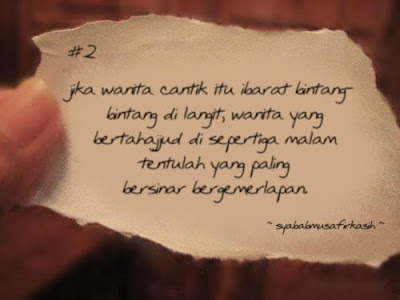 #2
jika wanita cantik itu ibarat bintang-
bintang di langit, wanita yang
bertahajjud di sepertiga malam
tentulah yang paling
bersinar bergemerlapan.
~ syababmusafirkasih ~